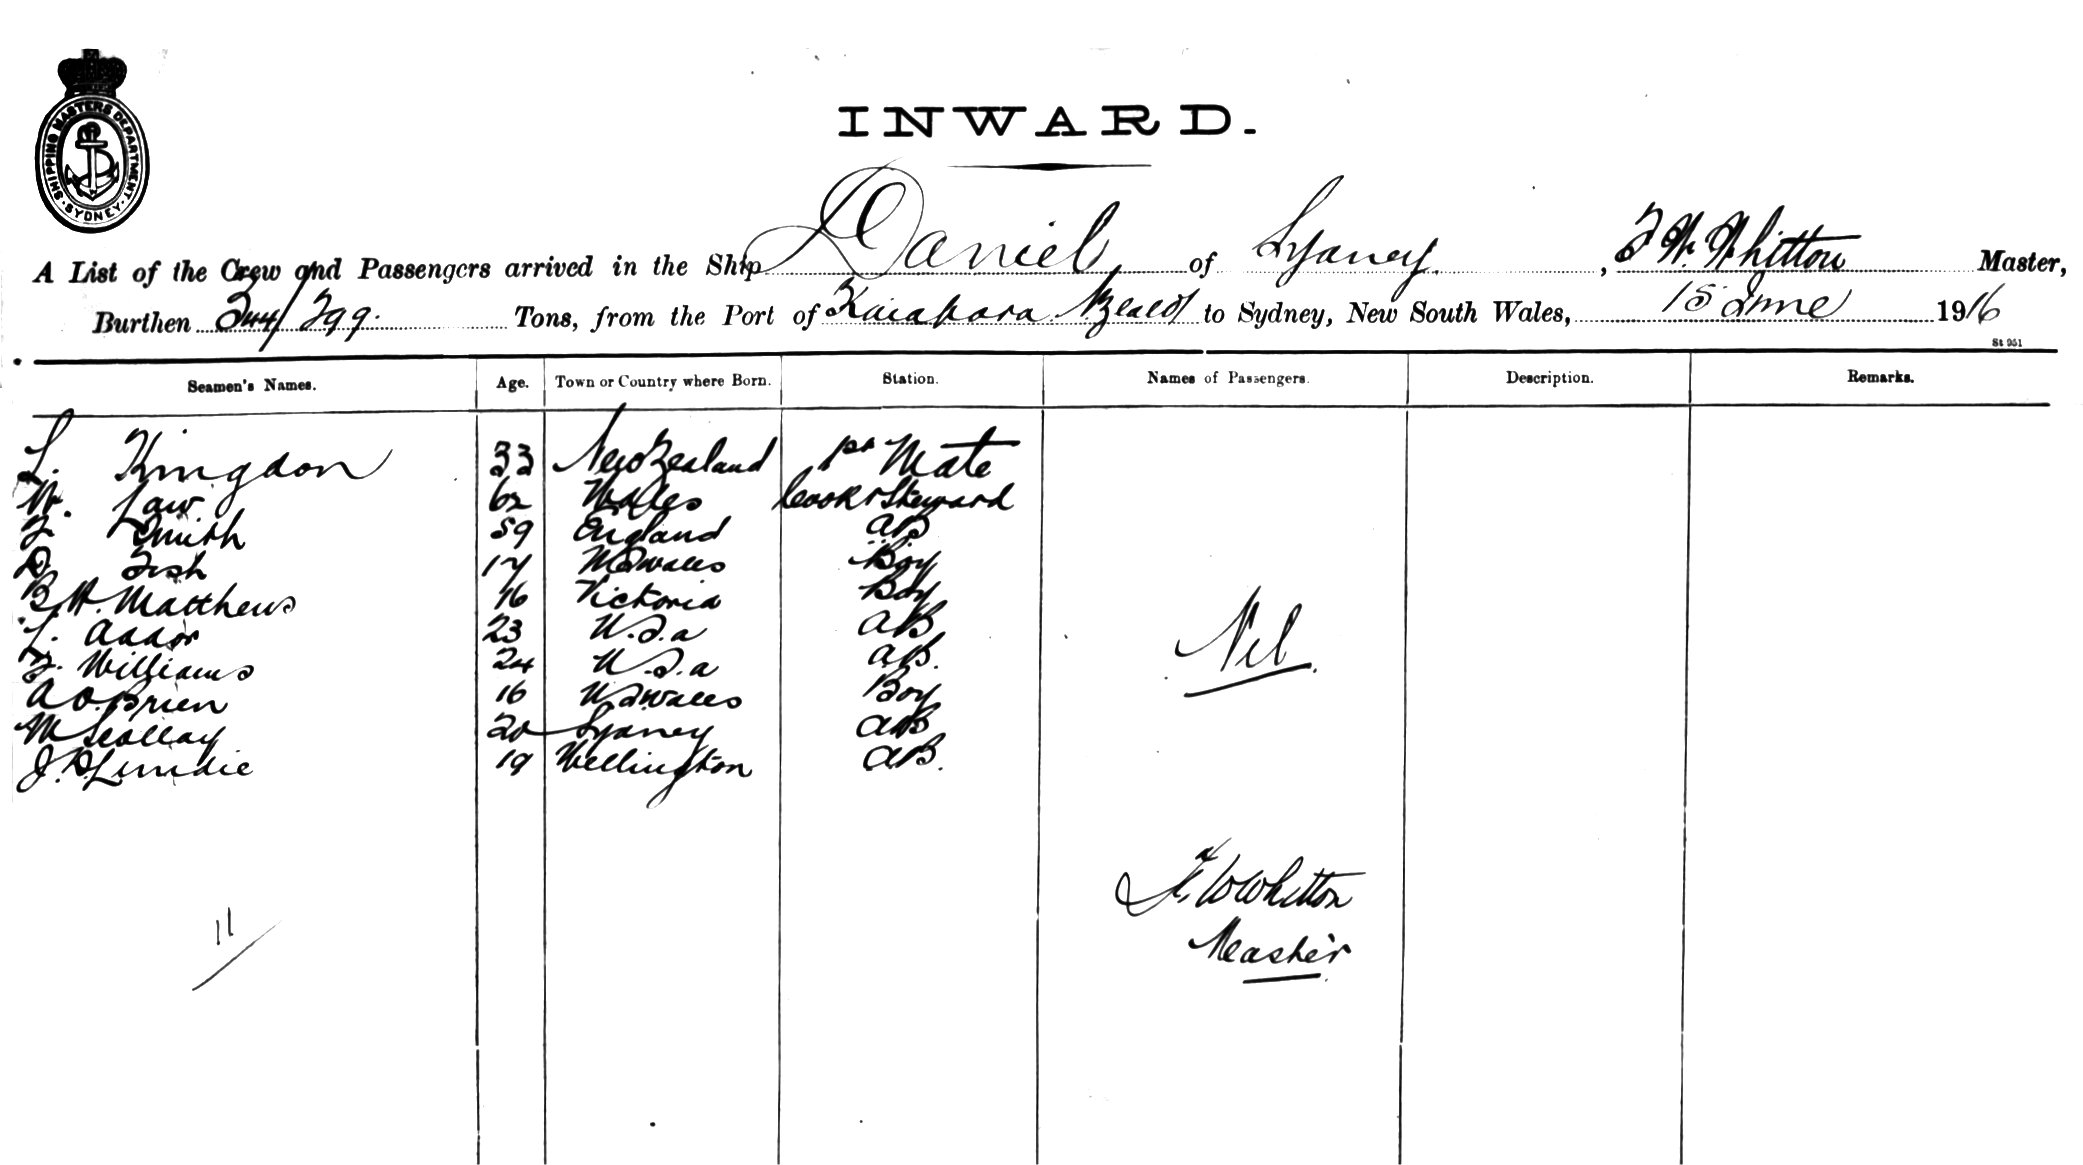 SHIPPING MASTERS DEPARTMENT. SYDNEY.
INWARD.
A List of the Crew and Passengers arrived in the Ship Daniel of Sydney, F W Whitton Master,
Burthen Tons, from the Port of Kaiapara N Zeald to Sydney, New South Wales, 15 June 1916
St 951
Seamen's Names. Age. Town or Country where Born. Station. Names of Passengers. Description. Remarks.
L. Kingdon 33 New Zealand 1st Mate
W. Law 62 Wales Cook & Steward
F Smith 59 England AB
D Fish 17 N S Wales Boy
B H. Matthews 16 Victoria Boy
L. 23 U.S.a AB
F. Williams 24 U.S.a AB.
A O.Brien 16 N S Wales Boy
M Scollay 20 Sydney AB
J. P. Lundie 19 Wellington AB.
Nil.
F. W Whitton
Master
11